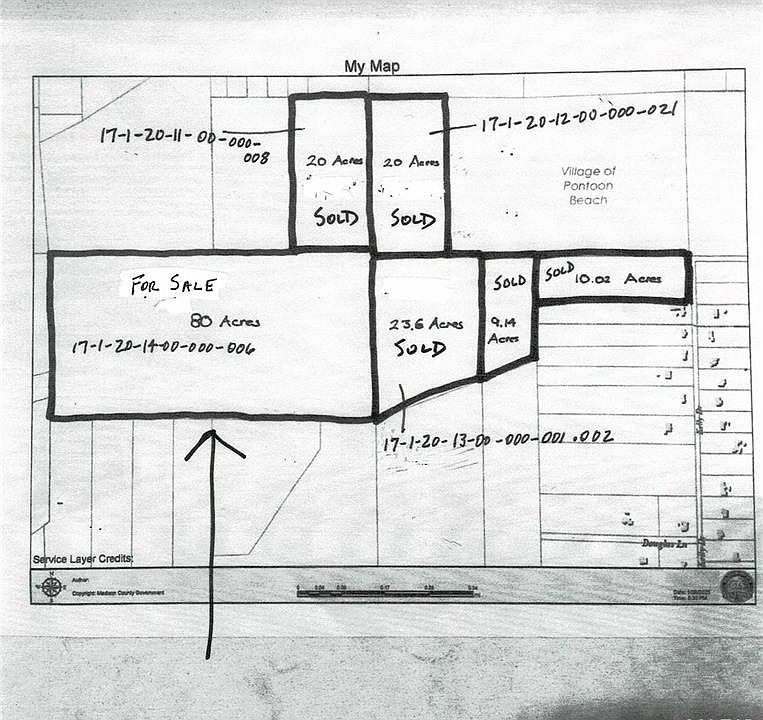 My Map
17-1-20-11-00-000-
008
17-1-20-12-00-000-021
20 Acres
SOLD
20 Acres
SOLD
Village of
Pontoon
Beach
FOR SALE
80 Acres
17-1-20-14-00-000-006
23.6 Acres
SOLD
SOLD
9.14
Acres
SOLD
10.02 Acres
17-1-20-13-00-000-001.002
Douglas Ln
Service Layer Credits:
Author:
Copyright: Madison County Government